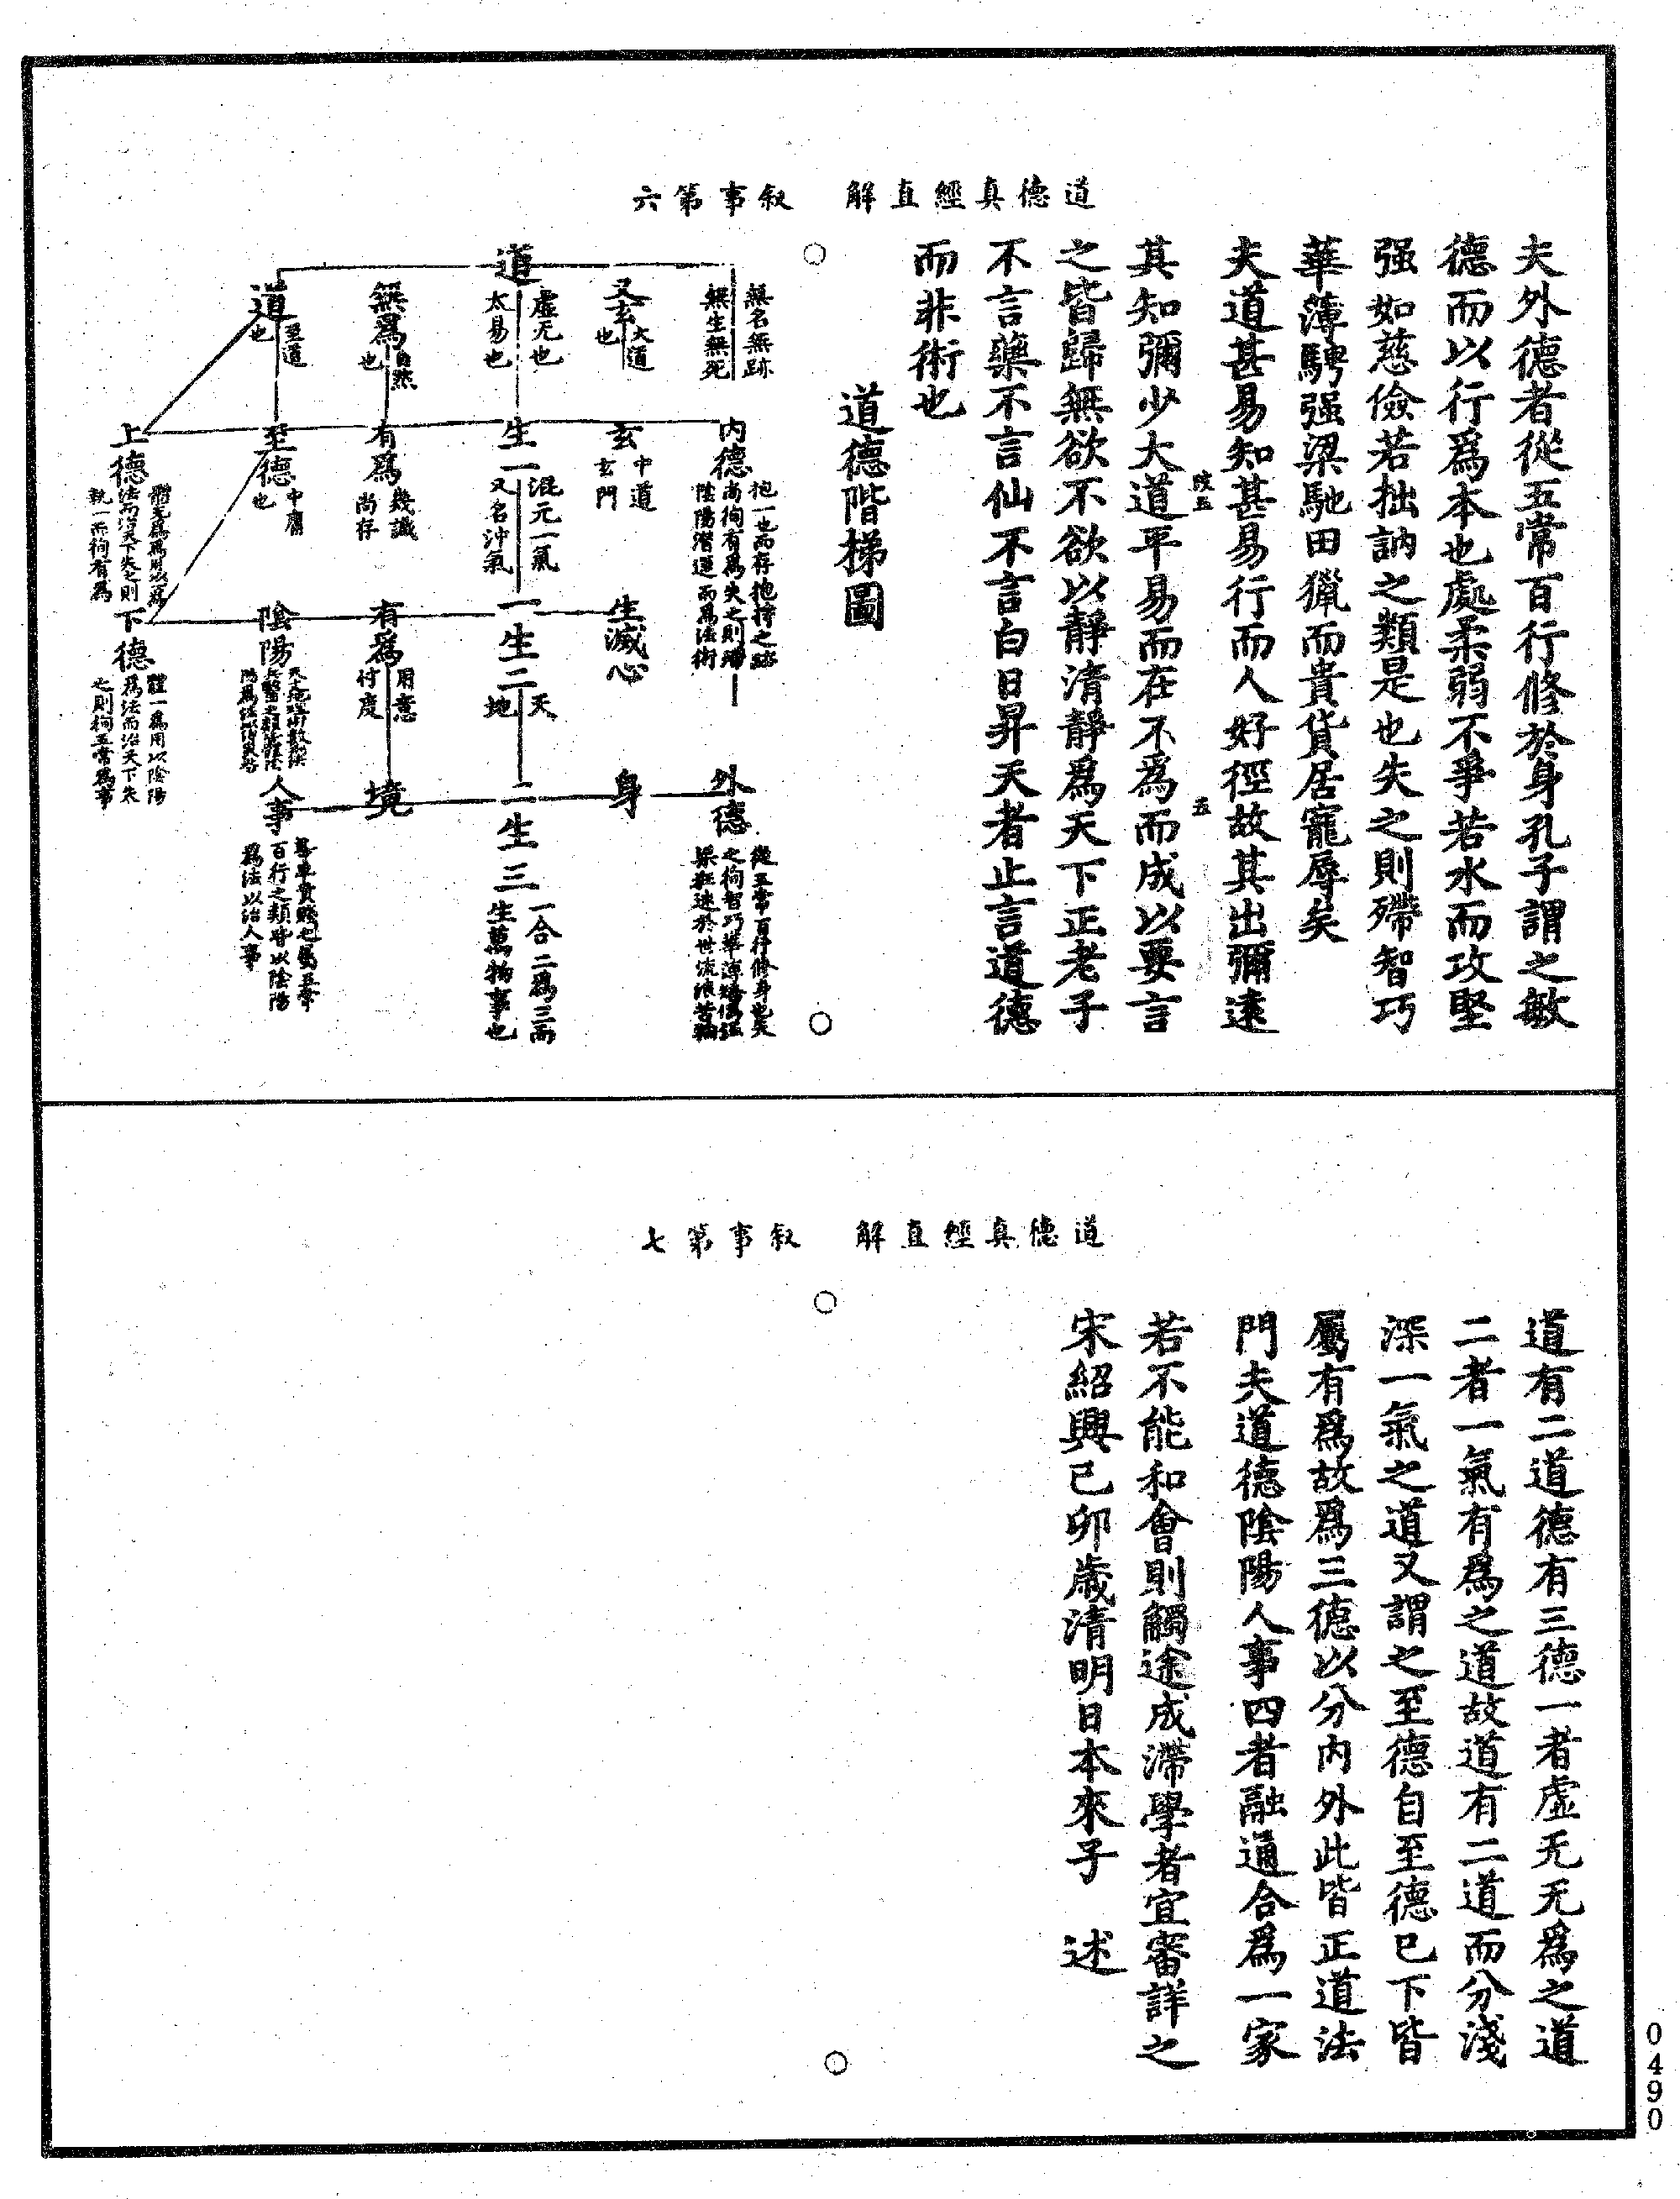 道德真經直解　叙事第六
夫外德者從五常百行修於身孔子謂之敏
德而以行爲本也處柔弱不爭若水而攻堅
强如慈儉若拙訥之類是也失之則殢智巧
華薄騁强梁馳田獵而貴貨居寵辱矣
夫道甚易知甚易行而人好徑故其出彌遠
其知彌少大道平易而在不爲而成以要言
之皆歸無欲不欲以靜清靜爲天下正老子
不言藥不言仙不言白日昇天者止言道德
而非術也
道德階梯圖
無名無跡
無生無死
內德
抱一也而存抱守之跡
尚拘有爲失之則殢
陰陽潛運而爲法術
外德
從五常百行修身也失
之拘智巧華薄
又玄
大道
也
玄
中道
玄門
生滅心
身
道
虛无也
太易也
生一
混元一氣
又名沖氣
一生二
天
地
二生三
一合二爲三而
生萬物事也
無爲
自然
也
有爲
幾識
尚存
有爲
用意
忖度
境
道
至道
也
至德
中庸
也
陰陽
人事
尊卑貴賤也屬五常
百行之類皆以陰陽
爲法以治人事
上德
體无爲爲用以爲
法而治天下失之則
執一而拘有爲
下德
體一爲用以陰陽
爲法而治天下失
之則拘五常爲事
道德真經直解　叙事第七
道有二道德有三德一者虛无无爲之道
二者一氣有爲之道故道有二道而分淺
深一氣之道又謂之至德自至德已下皆
屬有爲故爲三德以分內外此皆正道法
門夫道德陰陽人事四者融通合爲一家
若不能和會則觸途成滯學者宜審詳之
宋紹興己卯歲清明日本來子　述
0490